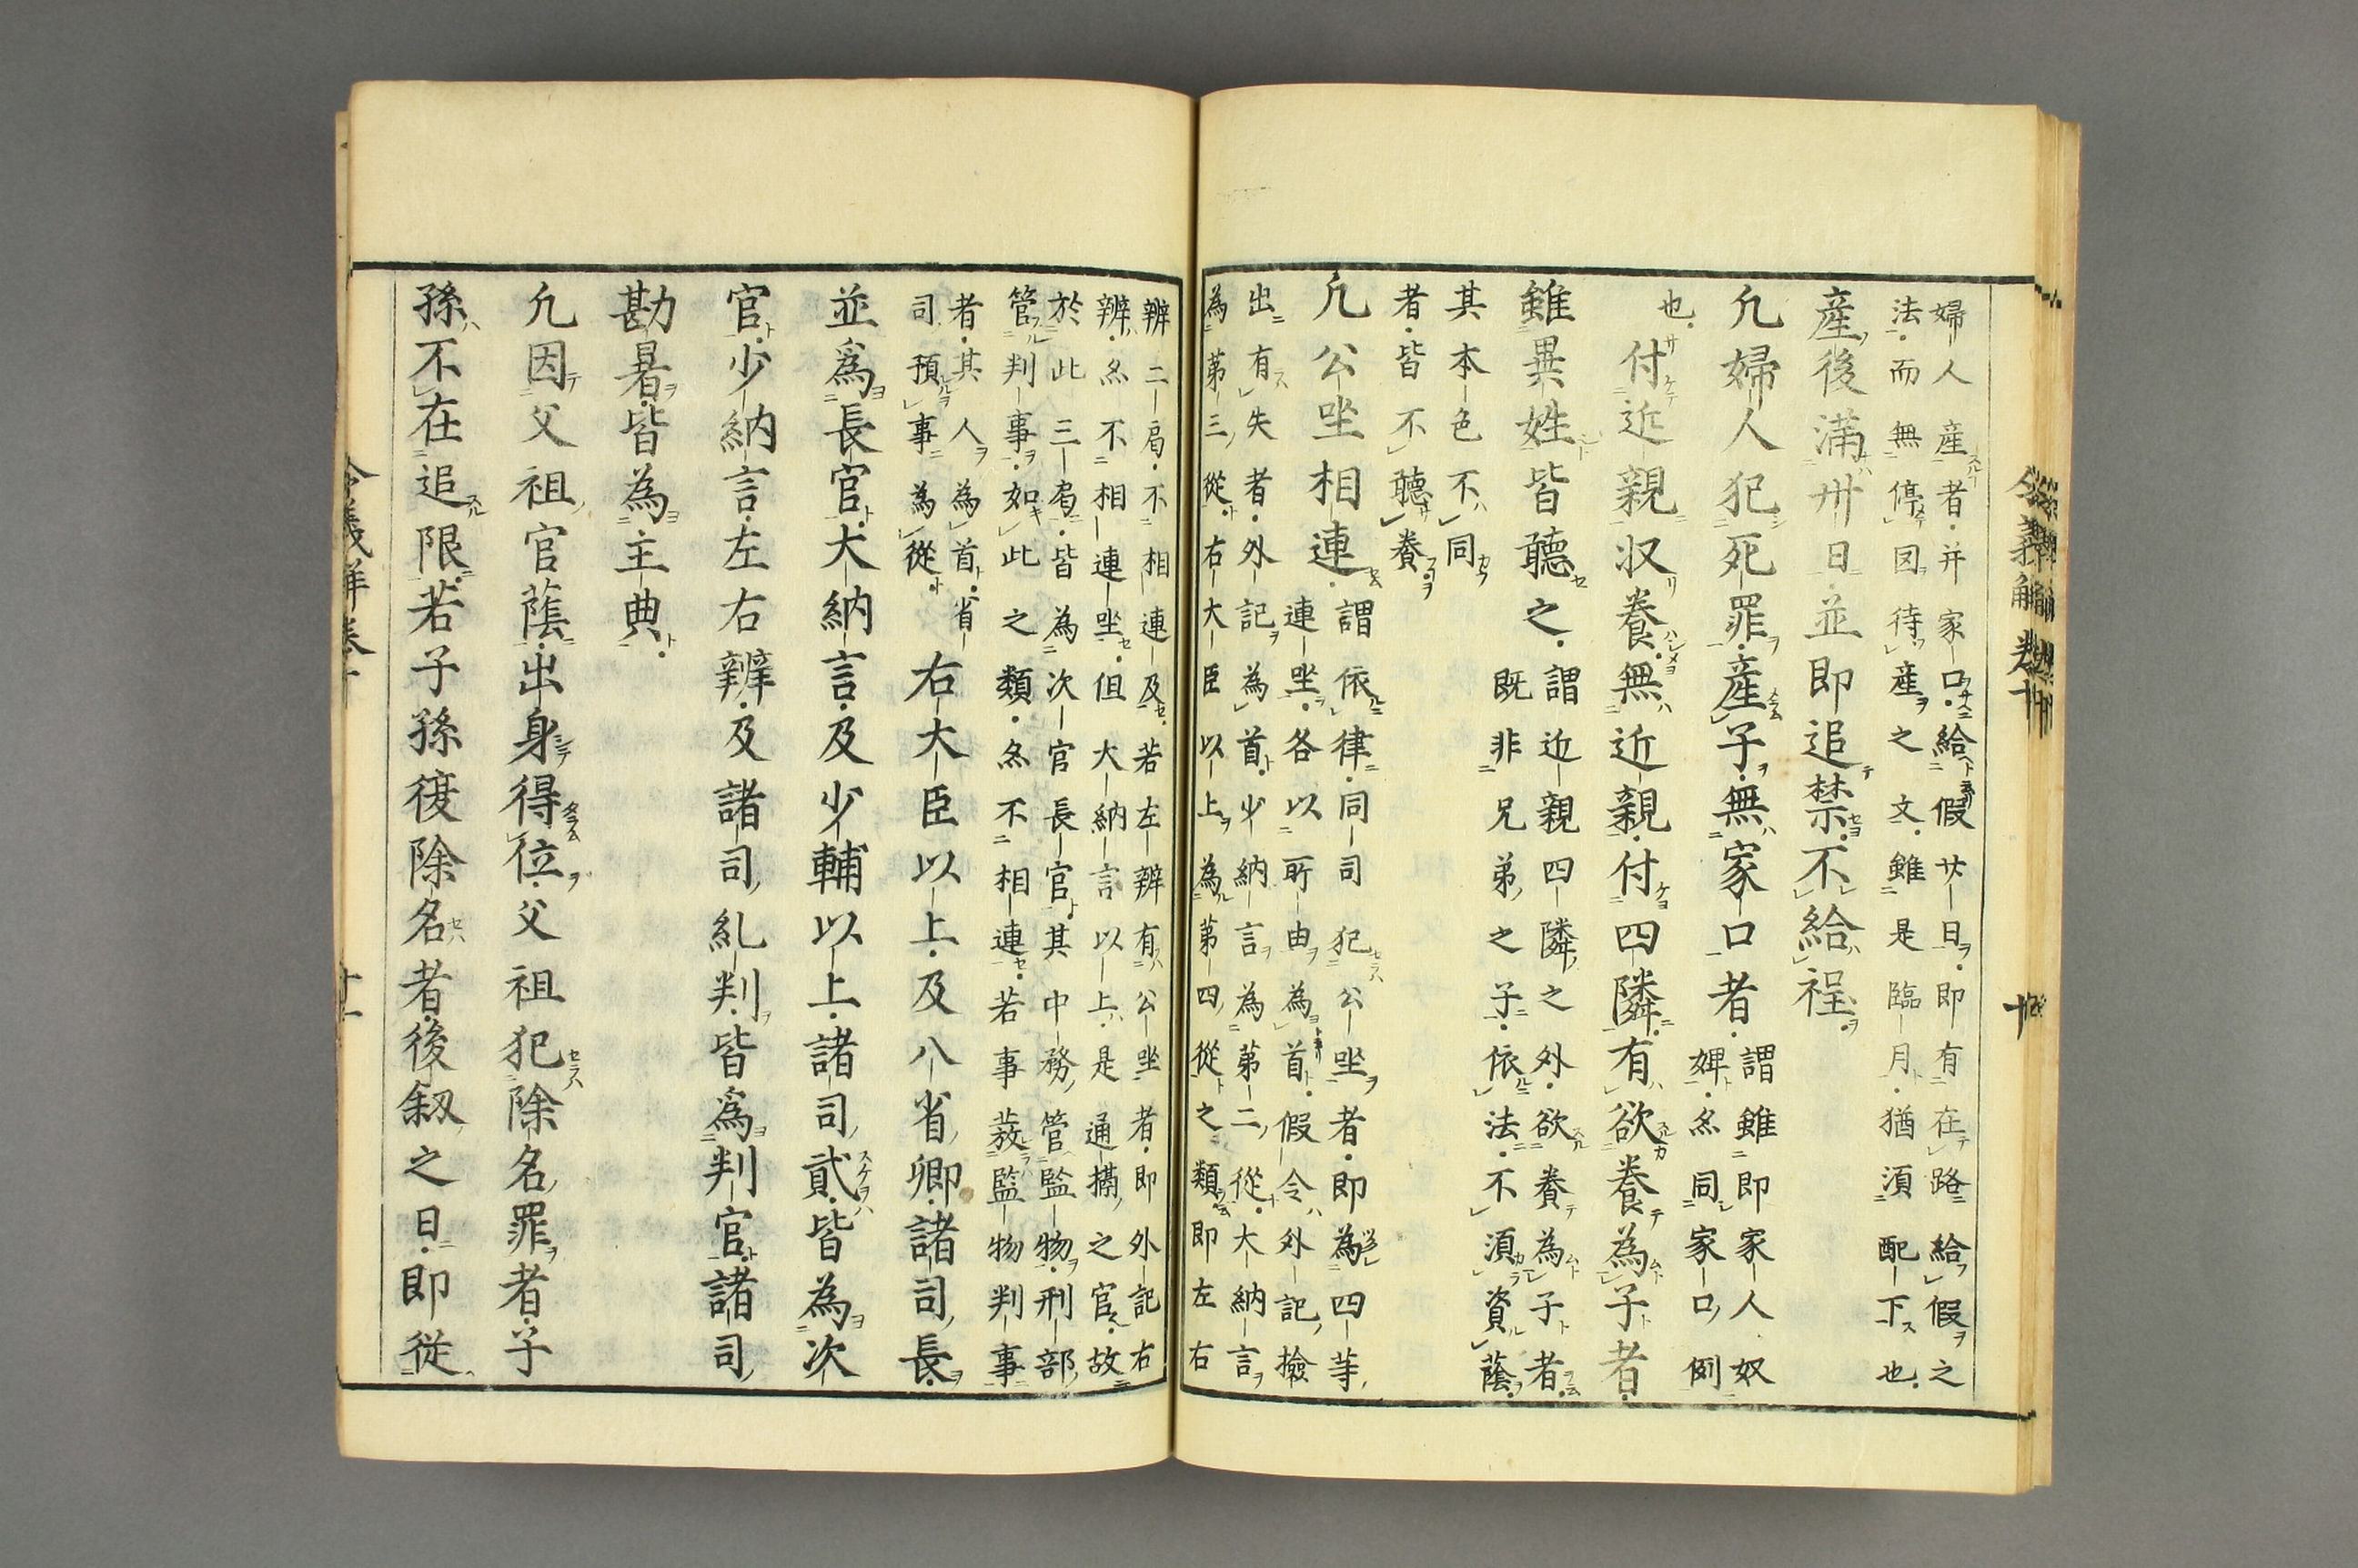 婦人産者并家口給假廿日即有在路給假之
法而無停囙待産之文雖是臨月猶湏配下也
産後滿卅日並即追禁不給程
凢婦人犯死罪産子無家口者謂雖即家人奴
婢亦同家口例
也付近親収養無近親付四隣有欲養為子者
雖異姓皆聽之謂近親四隣之外欲養為子者
既非兄弟之子依法不湏資蔭
其本色不同
者皆不聽養
凢公坐相連謂依律同司犯公坐者即為四等
連坐各以所由為首假令外記撿
出有失者外記為首少納言為苐二從大納言
為苐三從右大臣以上為苐四從之類即左右
辨二局不相連及若左辨有公坐者即外記右
辨亦不相連坐但大納言以上是通攝之官故
於此三局皆為次官長官其中務管監物刑部
管判事如此之類亦不相連若事發監物判事
者其人為首省
司預事為從
右大臣以上及八省卿諸司長
並爲長官大納言及少輔以上諸司貳皆為次
官少納言左右辨及諸司糺判皆爲判官諸司
勘署皆為主典
凢因父祖官蔭出身得位父祖犯除名罪者子
孫不在追限若子孫復除名者後叙之日即從
令義解卷十